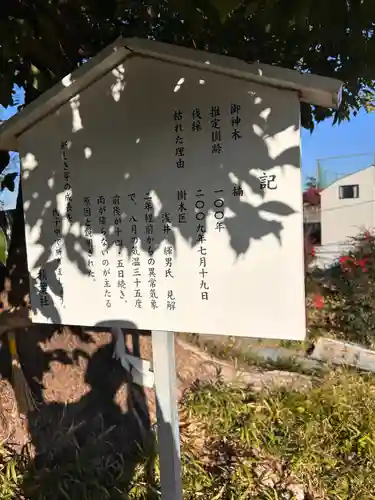 記
御神木 楠
推定樹齢 一〇〇年
伐採 二〇〇九年七月十九日
枯れた理由
樹木医 浅井 輝男氏 見解
二年程前からの異常気象
で、八月の気温三十五度
前後が十四・五日続き、
雨が降らないのが主たる
原因と説明された。
新しき芽の成長を